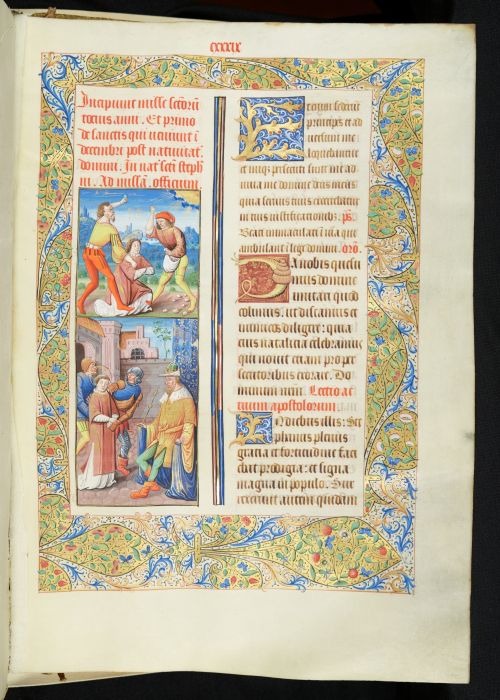 cxxxix
Incipiunt misse sctoru
tocius anni. Et primo
de sanctis qui veniunt i
decembre post nativitate
domini. In nat sci steph
ni. Ad missa. officium.
Etenim sederunt
principes et ad
versum me
loquebantur
et iniqui persecuti sunt me ad
iuva me domine deus meus
quia servus tuus exercebatur
in tuis iustificationibus. ps
Beati immaculati i via qui
ambulant i lege domini. oro
Da nobis quesu
mus domine
imitari quod
colimus. ut discamus et
inimicos diligere: quia
eius natalicia celebramus
qui novit etiam pro per
secutoribus exorare. Do
minum nrm. Lectio ac
tuum apostolorum.
In diebus illis: Ste
phanus plenus
gratia et fortitudine faci
ebat prodigia: et signa
magna in populo. Surr
exerunt autem quidam